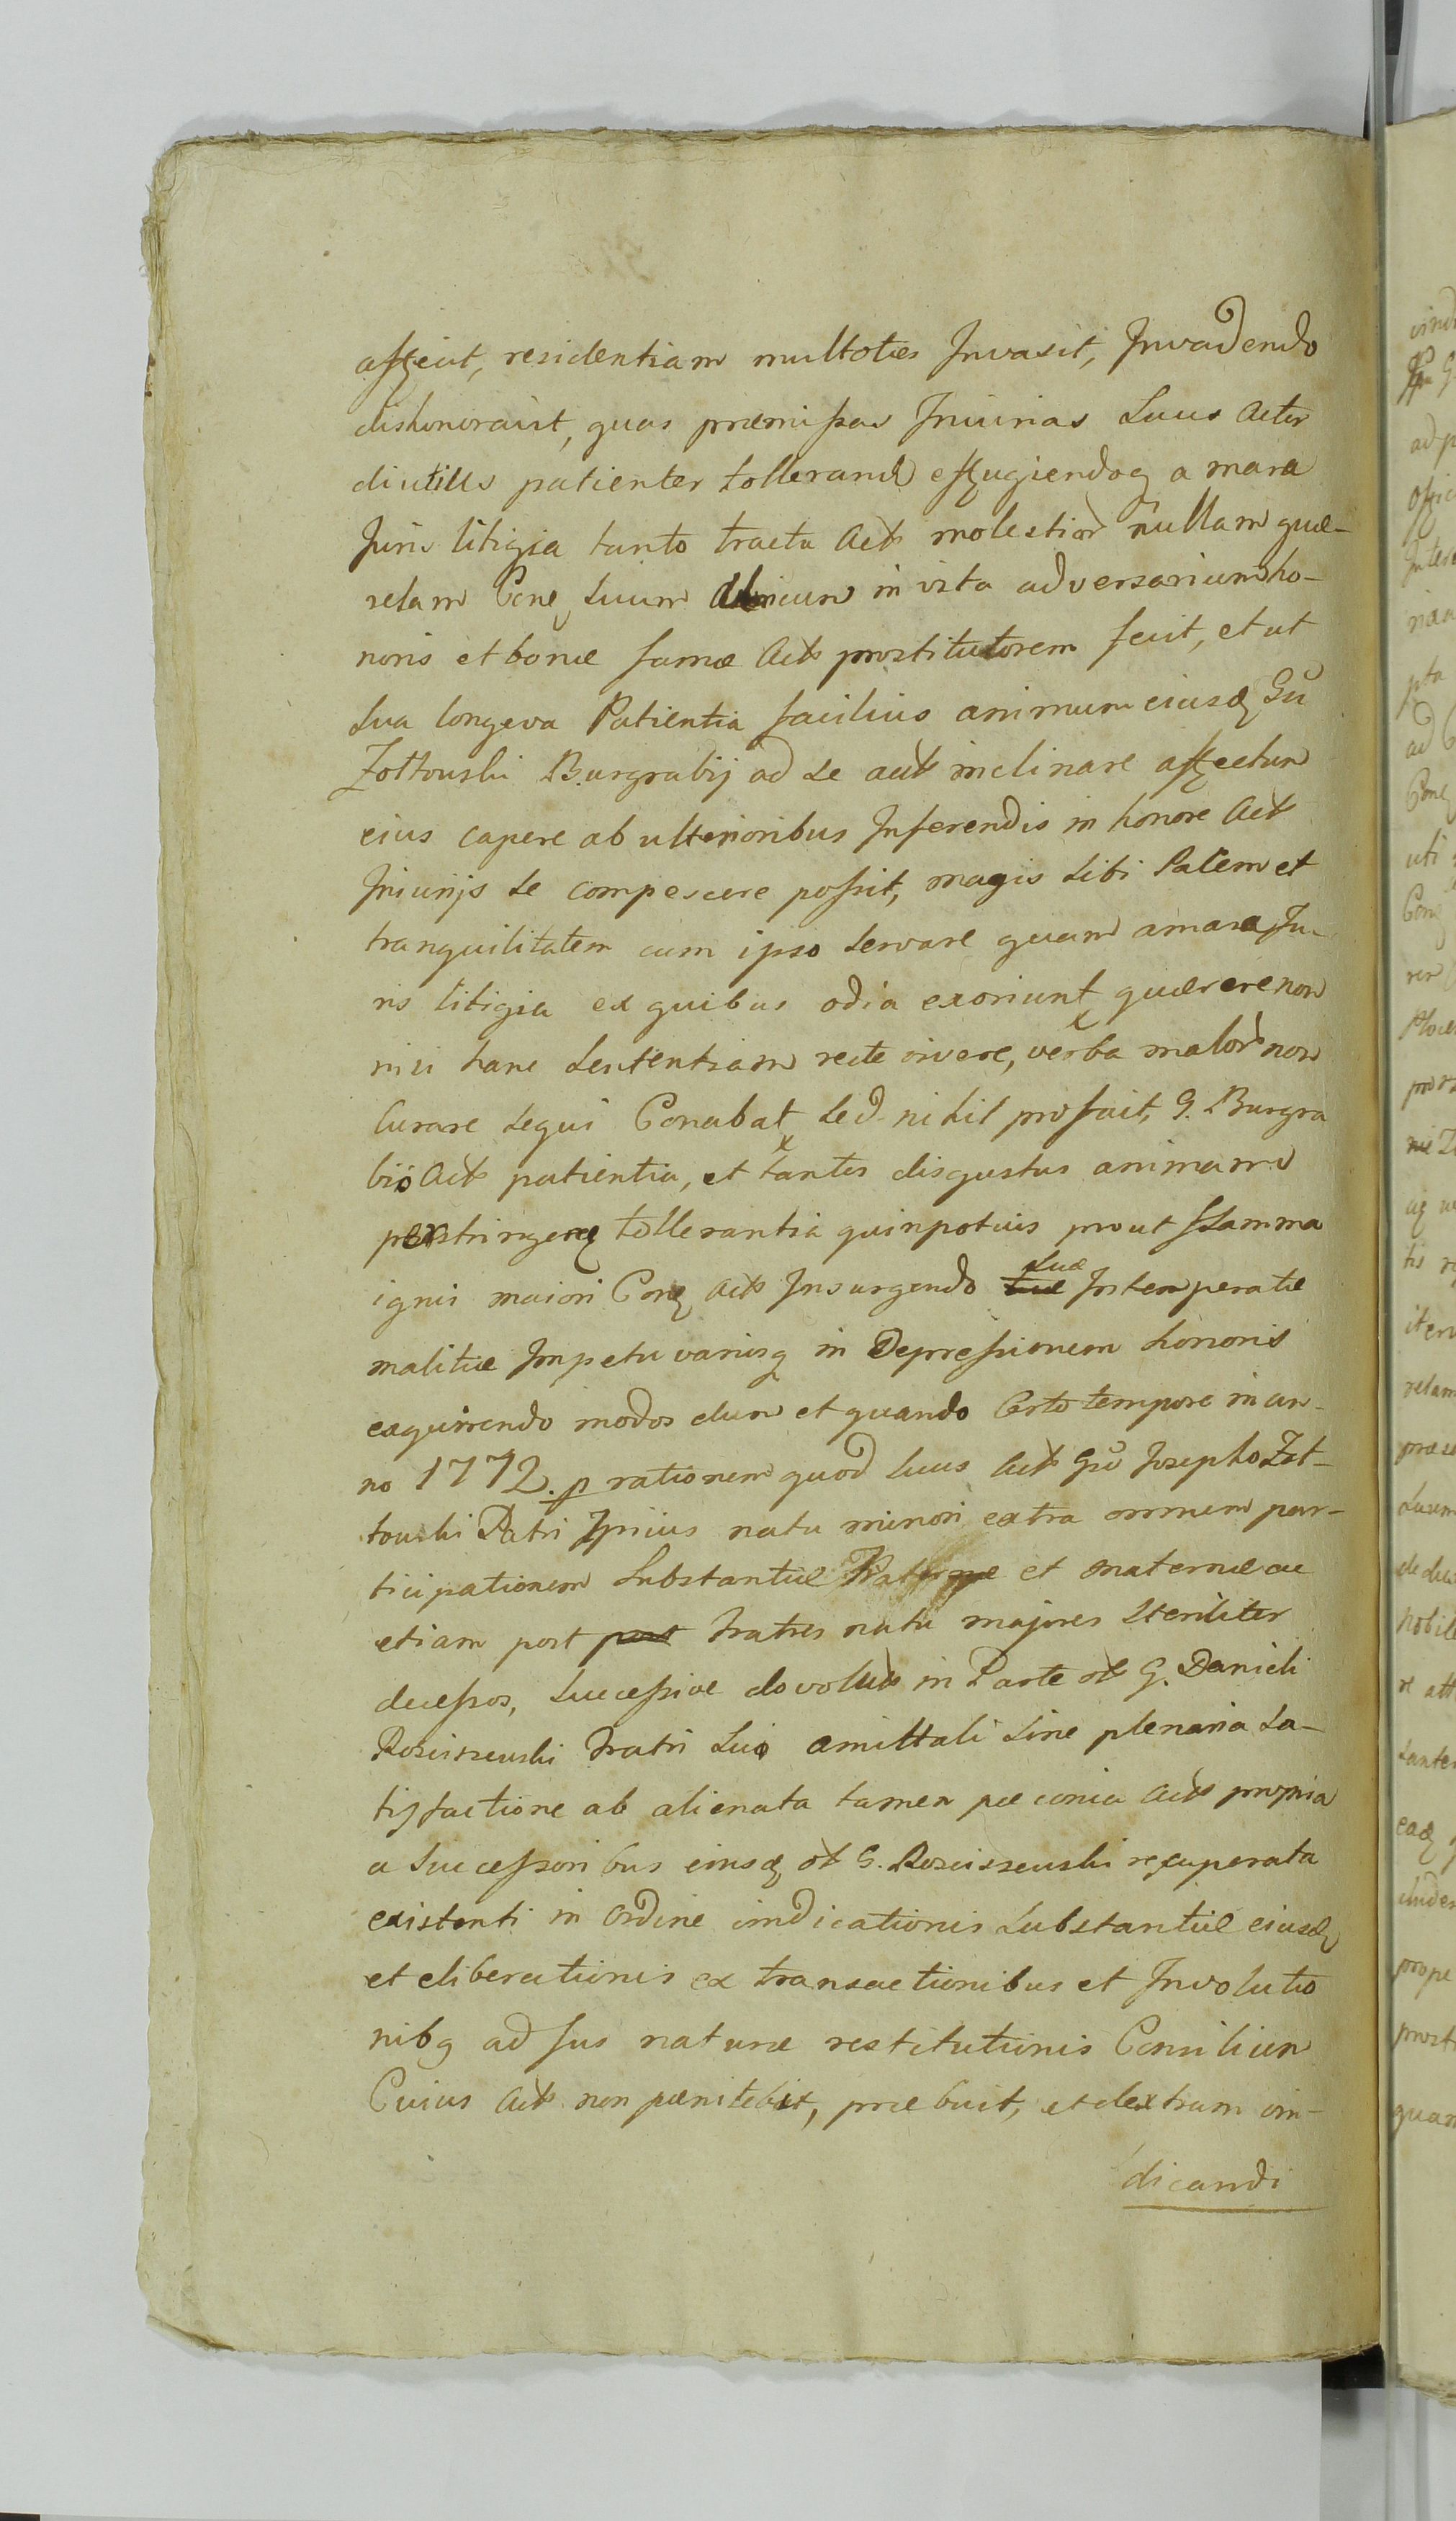 affecit, residentiam multoties Invasit, Invadendo
dishonoravit, quas præmissas Iniurias Suus Actor
diutius patienter tollerand effugiendoq amara
Juris litigia tanto tractu Actƺ molestiar nullam quæ-
relam Cone Suum Amicum in vita adversarium ho-
noris et bonæ famæ Actƺ prostitutorem fecit, et ut
Sua longeva Patientia facilius animum eiusd Gu
Zottowski Burgrabij ad se actƺ inclinare affectum
eius capere ab ulterioribus Inferendis in honore Actƺ
Iniurijs se compescere possit, magis sibi Pacem et
tranquilitatem cum ipso servare quam amara Ju-
ris litigia ex quibus odia exoriunt quærere non
nisi hanc Sententiam recte vivere, verba malor non
Curare sequi Conabat sed nihil profuit, G. Burgra
bio Actƺ patientia, et tantos disgustus animam
perstringereq tollerantia quinpotius prout flamma
ignis maiori Conq Actƺ Insurgendo suæ Intemperatæ
malitiæ Impetu variosq in Depressionem honoris
exquirendo modos dum et quando Certo tempore in an-
no 1772. p rationem quod suus Actƺ Gu Josepho Zot-
towski Patri Ipsius natu minori extra omnem par-
ticipationem Substantiæ Paternæ et maternæ ac
etiam post post Fratres natu majores Steriliter
decessos, Successive devolutƺ in Parte ol G. Danieli
Rosciszewski Fratri Suo amittali Sine plenaria Sa-
tisfactione ab alienata tamen pæcunia Actƺ propria
a Successoribus eiusd ol G. Rosciszewski recuperata
existenti in Ordine vindicationis Substantiæ eiusd
et eliberationis ex transactionibus et Involutio
nibq ad Jus naturæ restitutionis Consilium
Cuius Actƺ non pænitebit, præbuit, et dextram vin-
dicandi